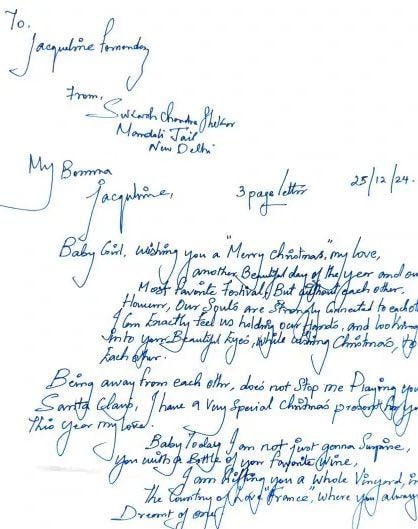 To,
Jacqueline Fernandez
From,
Sukash Chandra Shekar
Mandoli Jail
New Delhi
My Bomma
Jacqueline,
3 page letter
25/12/24.
Baby Girl, wishing you a "Merry Christmas," my love,
another Beautiful day of the year and our
Most Favorite Festival, But without each other.
However, Our Souls are Strongly Connected to each ot
I Can Exactly feel us holding our Hands, and looking
into your Beautiful Eyes, while wishing Christmas, to
Each other.
Being away from each other, does not Stop me Playing you
Santa Claus, I have a very Special Christmas present for yo
This year my love.
Baby Today I am not just gonna Surprise,
you with a Bottle of your Favorite Wine,
I am Gifting you a Whole Vineyard, in
the Country of Love "France", where you always
Dreamt of